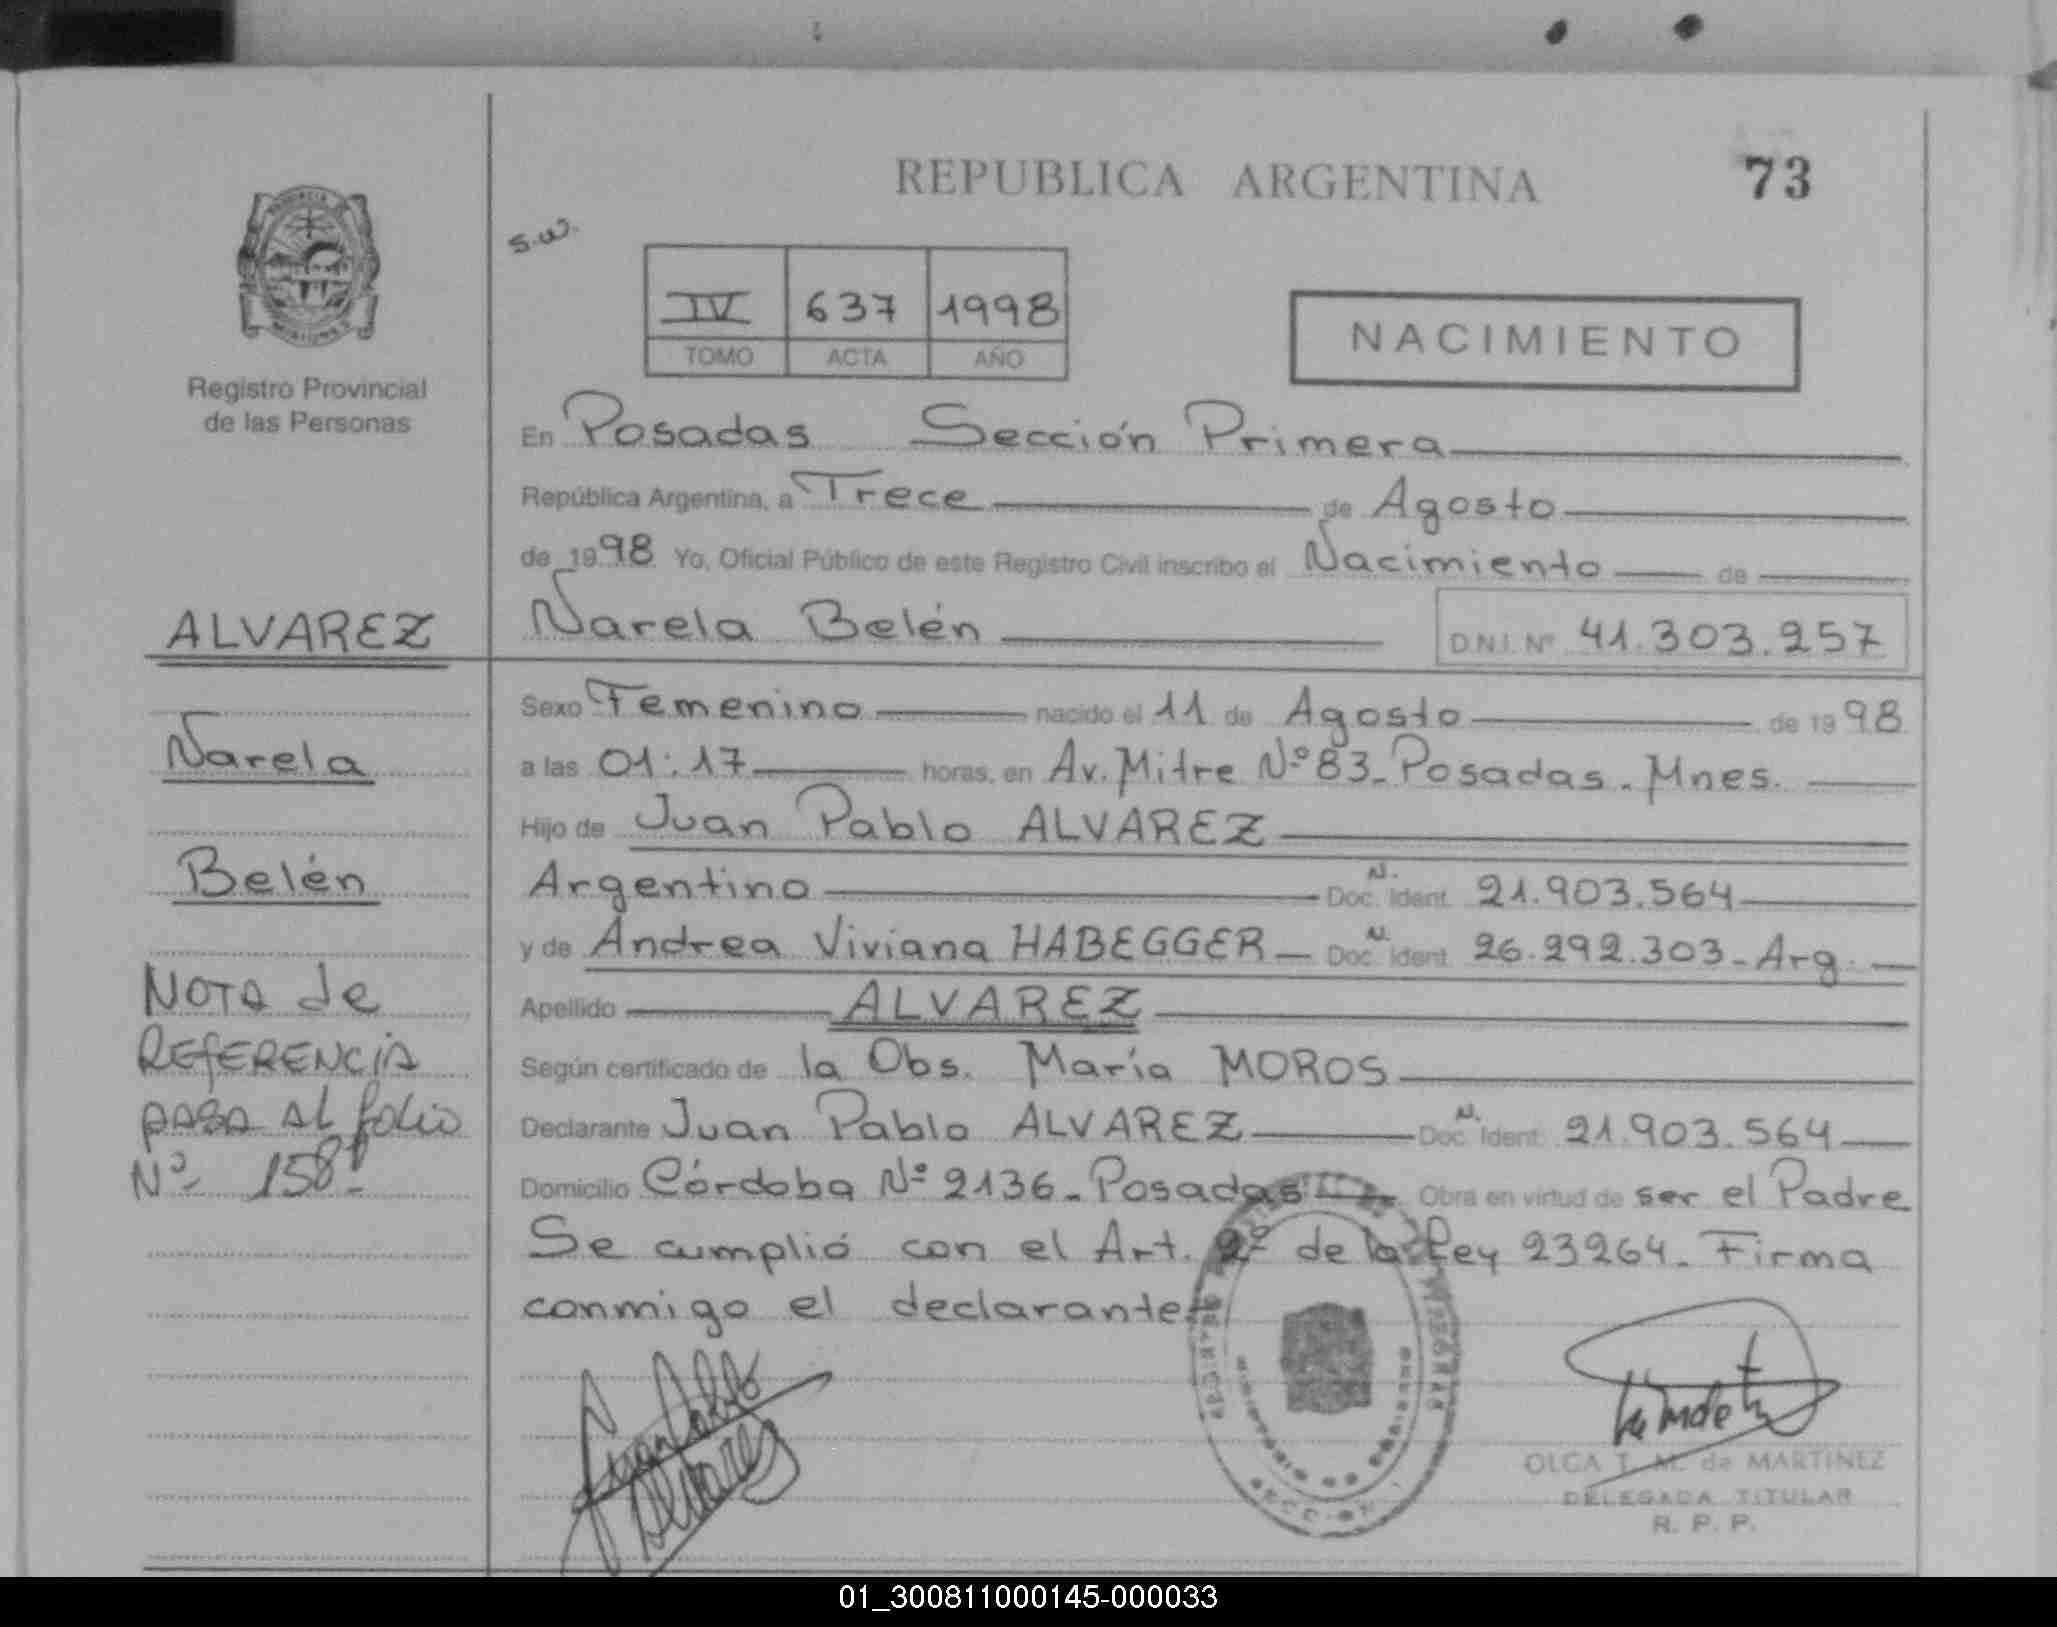 REPUBLICA ARGENTINA
73
s.w.
IV 637 1998
TOMO ACTA AÑO
NACIMIENTO
Registro Provincial
de las Personas
En Posadas Sección Primera
República Argentina, a Trece de Agosto
de 1998 Yo, Oficial Público de este Registro Civil inscribo el Nacimiento de
Narela Belén D.N.I. Nº 41.303.257
Sexo Femenino nacido el 11 de Agosto de 1998
a las 01:17 horas, en Av. Mitre Nº 83_ Posadas. Mnes.
Hijo de Juan Pablo ALVAREZ
Argentino N. Doc. Ident. 21.903.564
y de Andrea Viviana HABEGGER N. Doc. Ident. 26.292.303_ Arg.
Apellido ALVAREZ
Según certificado de la Obs. María MOROS
Declarante Juan Pablo ALVAREZ N. Doc. Ident. 21.903.564
Domicilio Córdoba Nº 2136_ Posadas Obra en virtud de ser el Padre
Se cumplió con el Art. 2º de la Ley 23264_ Firma
conmigo el declarante
ALVAREZ
Narela
Belén
NOTA de
REFERENCIA
PASA AL folio
Nº 158
Juan Pablo
Alvarez
OLGA T. M. de MARTINEZ
DELEGADA TITULAR
R. P. P.
01_300811000145-000033